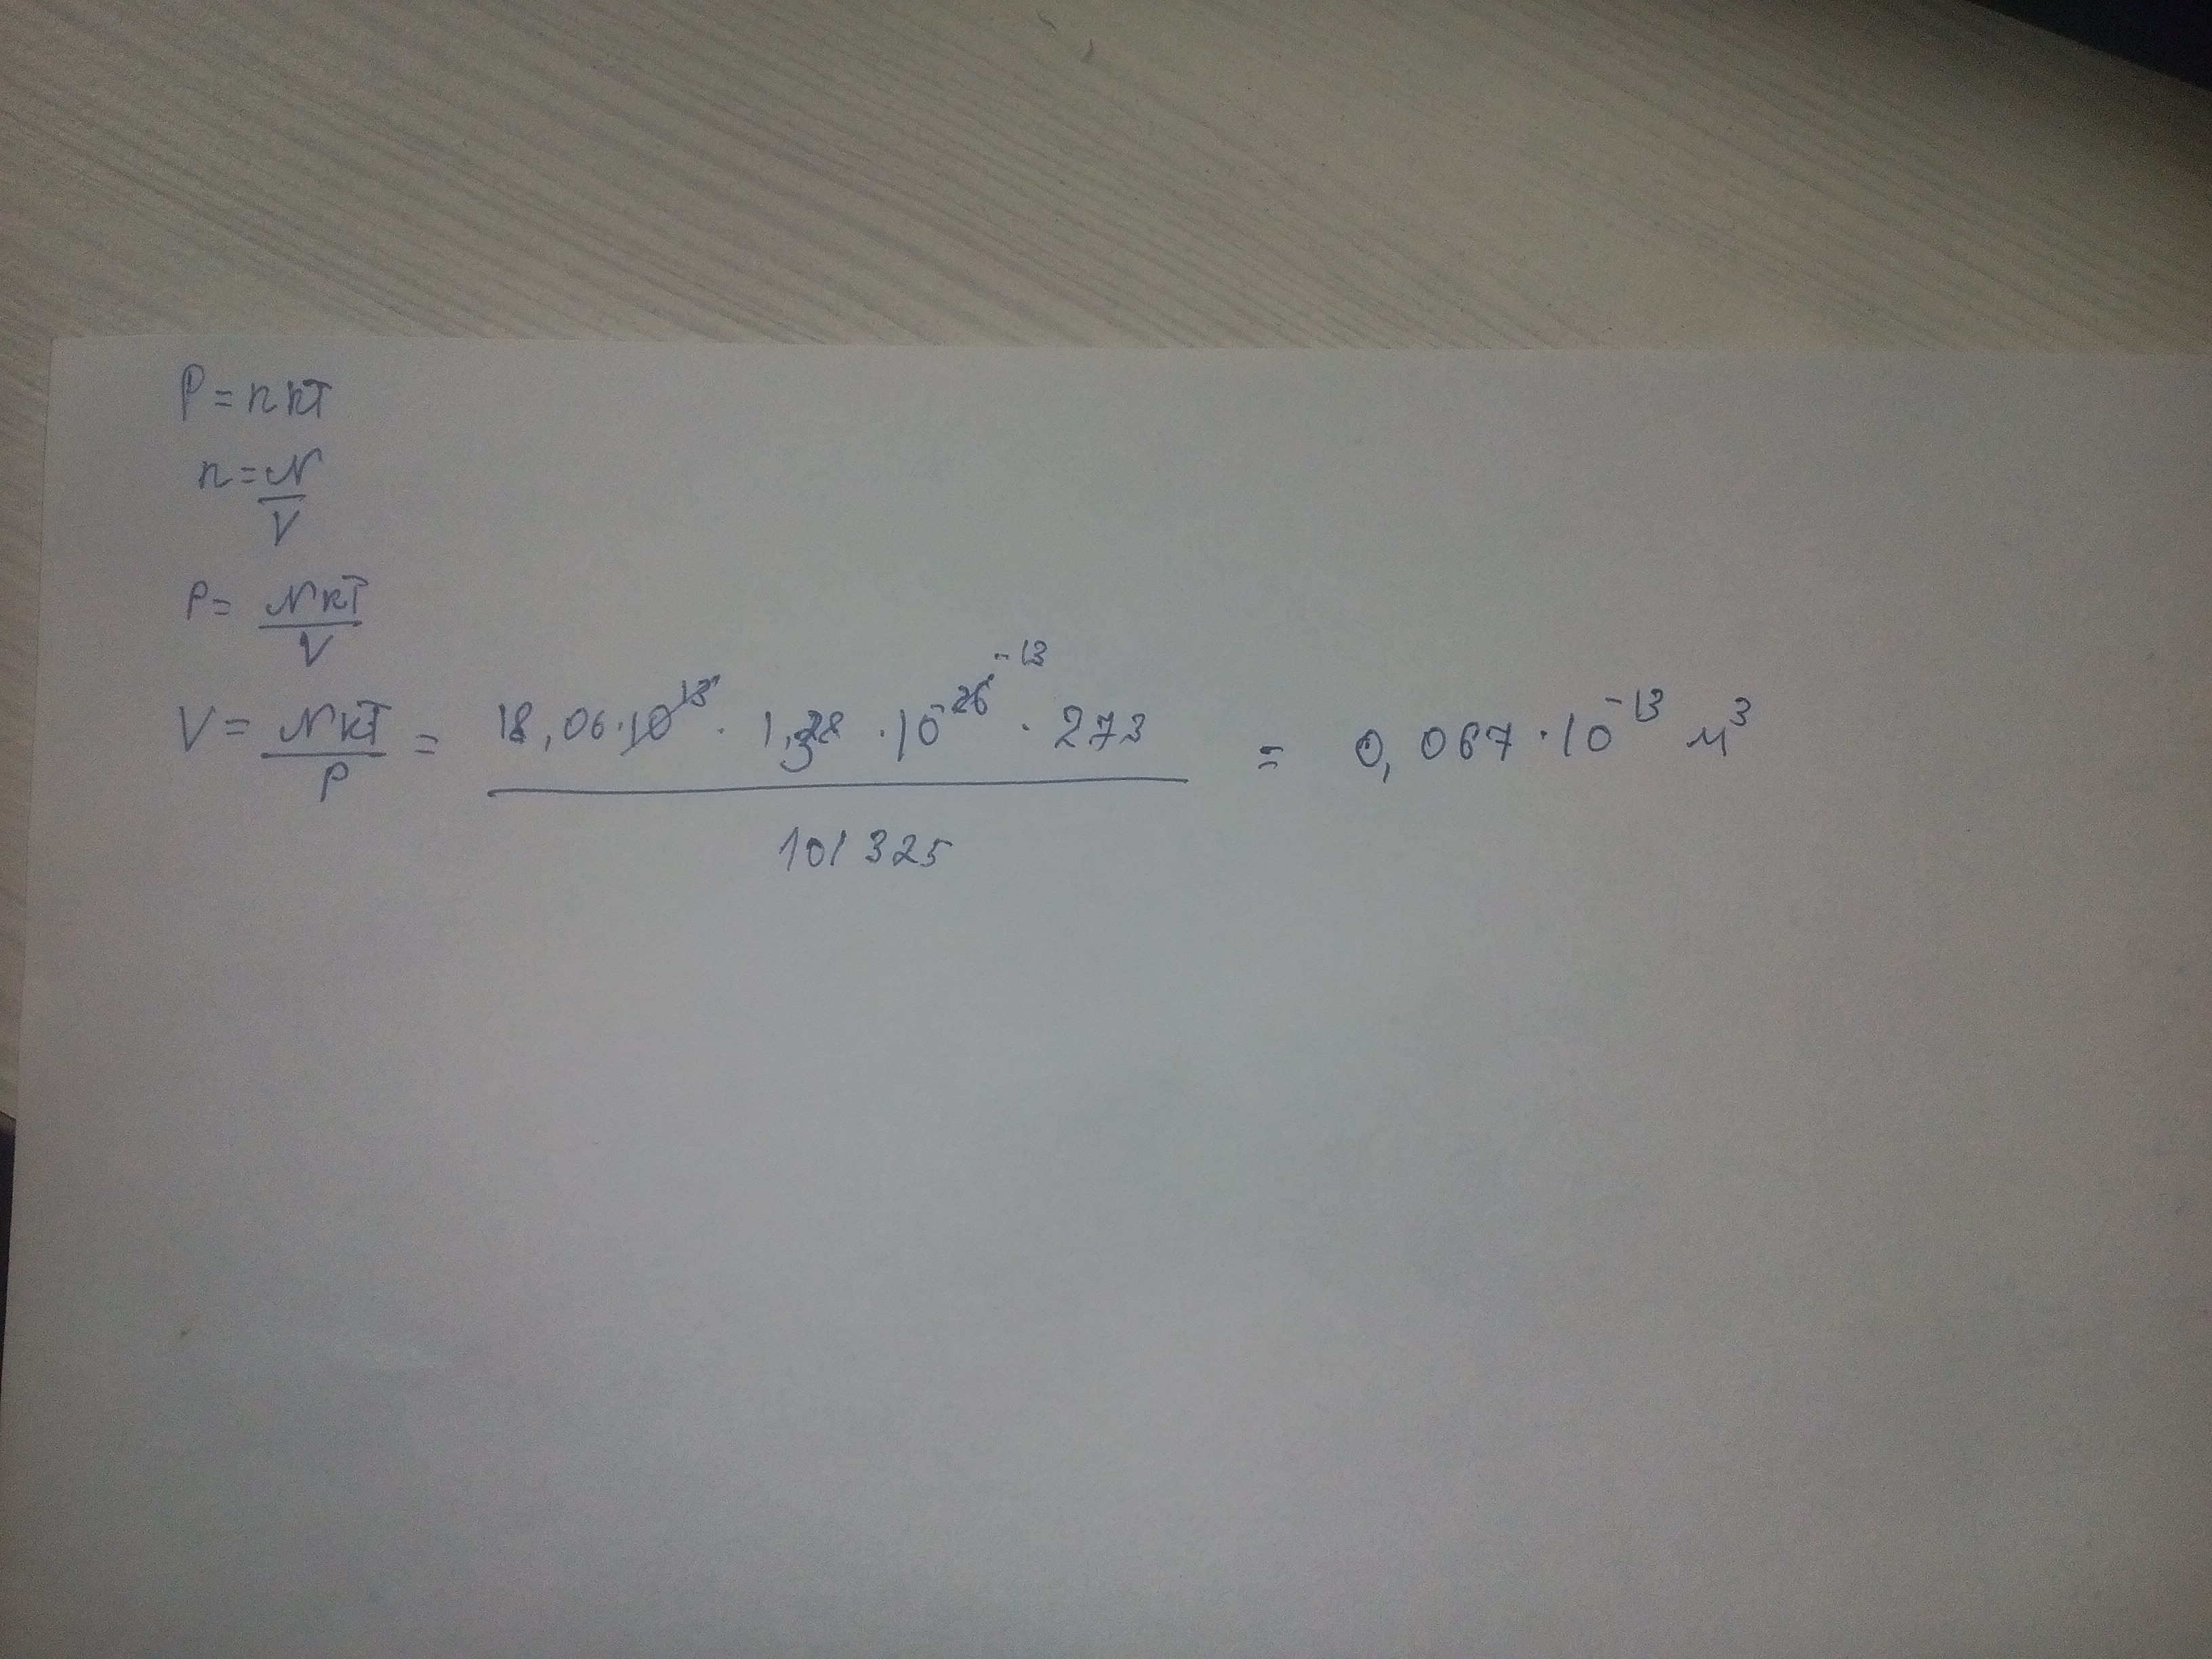 P = nkT
n = N/V
P = NkT/V
V = NkT/P = 18,06·10¹³ · 1,38 · 10⁻²⁶ ⁻¹³ · 273 / 101 325 = 0,067 · 10⁻¹³ м³